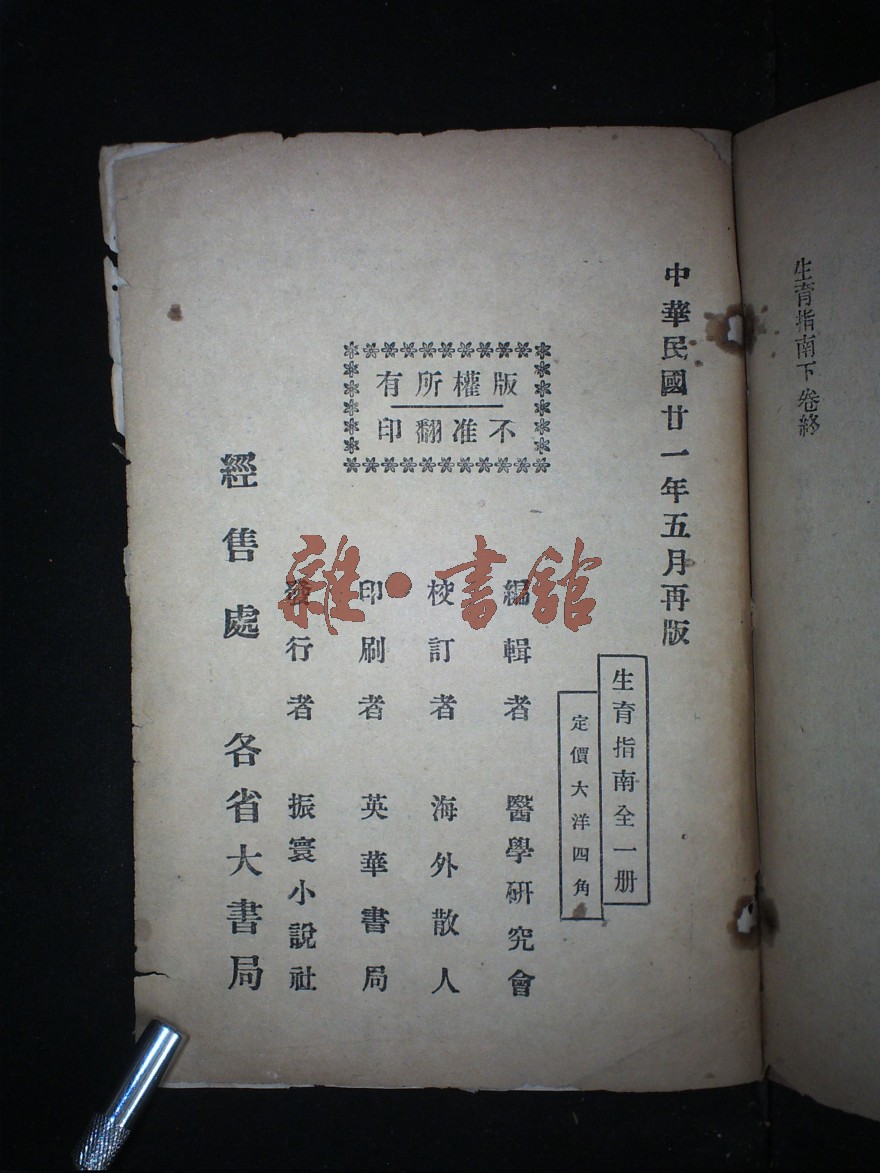 生育指南下卷終
中華民國廿一年五月再版
生育指南全一册
定價大洋四角
版權所有
不准翻印
編輯者 醫學研究會
校訂者 海外散人
印刷者 英華書局
發行者 振寰小說社
經售處 各省大書局
雜·書館